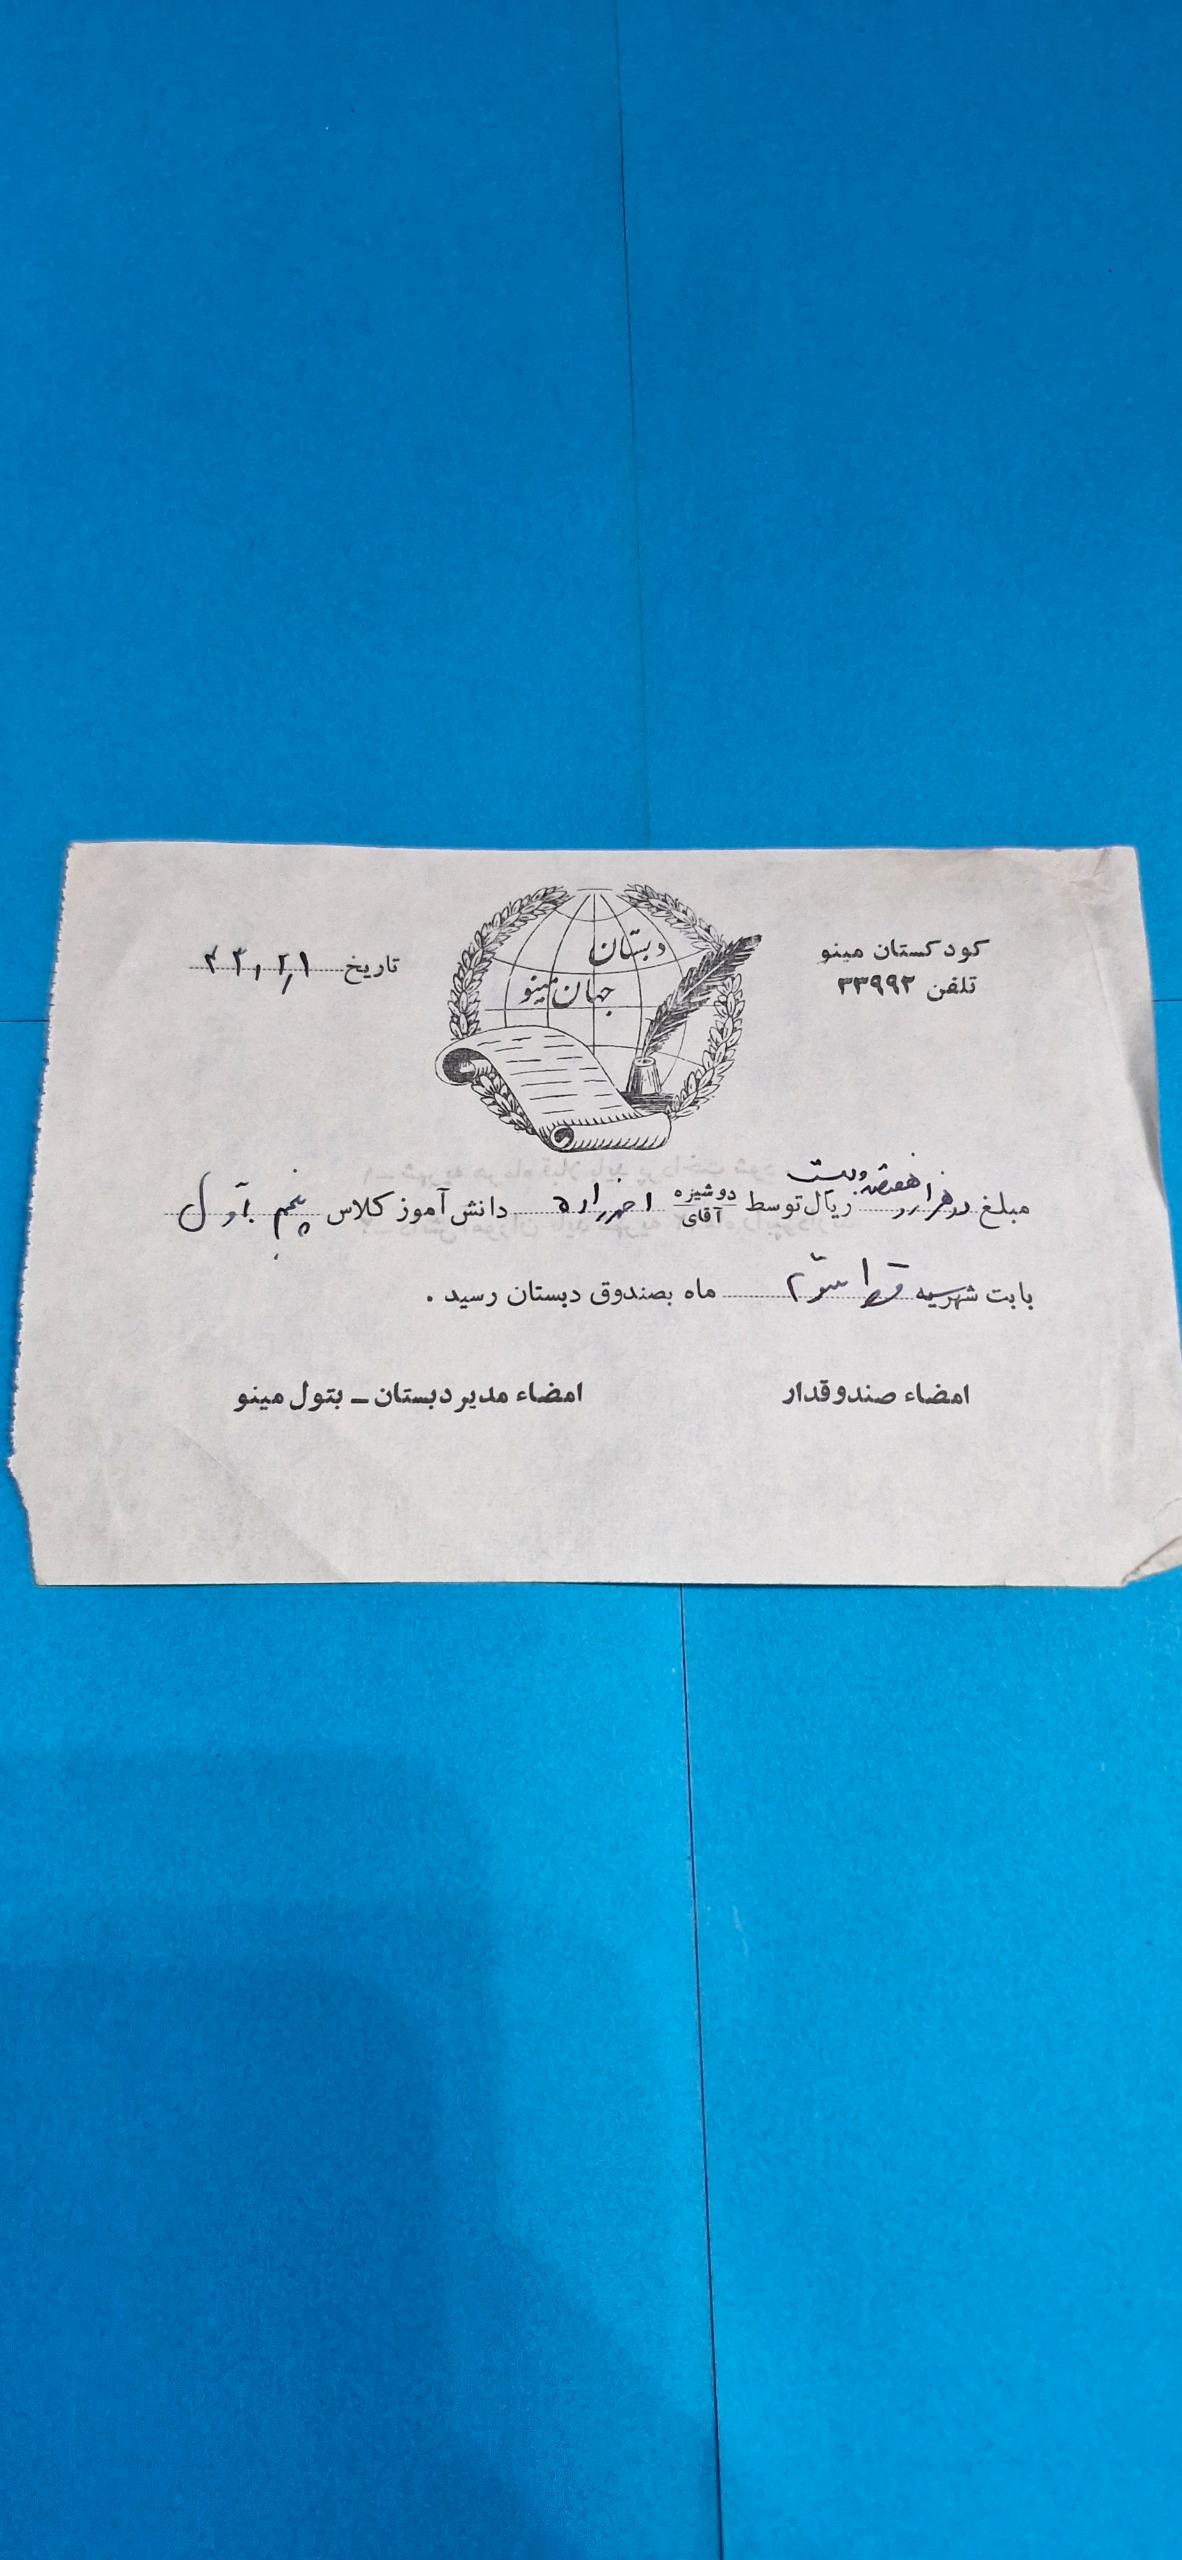 کودکستان مینو
تلفن ۳۳۹۹۲
دبستان
جهان مینو
تاریخ
مبلغ دو هزار و هفتصد و بیست ریال توسط دوشیزه آقای دانش آموز کلاس پنجم
بابت شهریه قسط سوم ماه بصندوق دبستان رسید .
امضاء صندوقدار
امضاء مدیر دبستان ــ بتول مینو